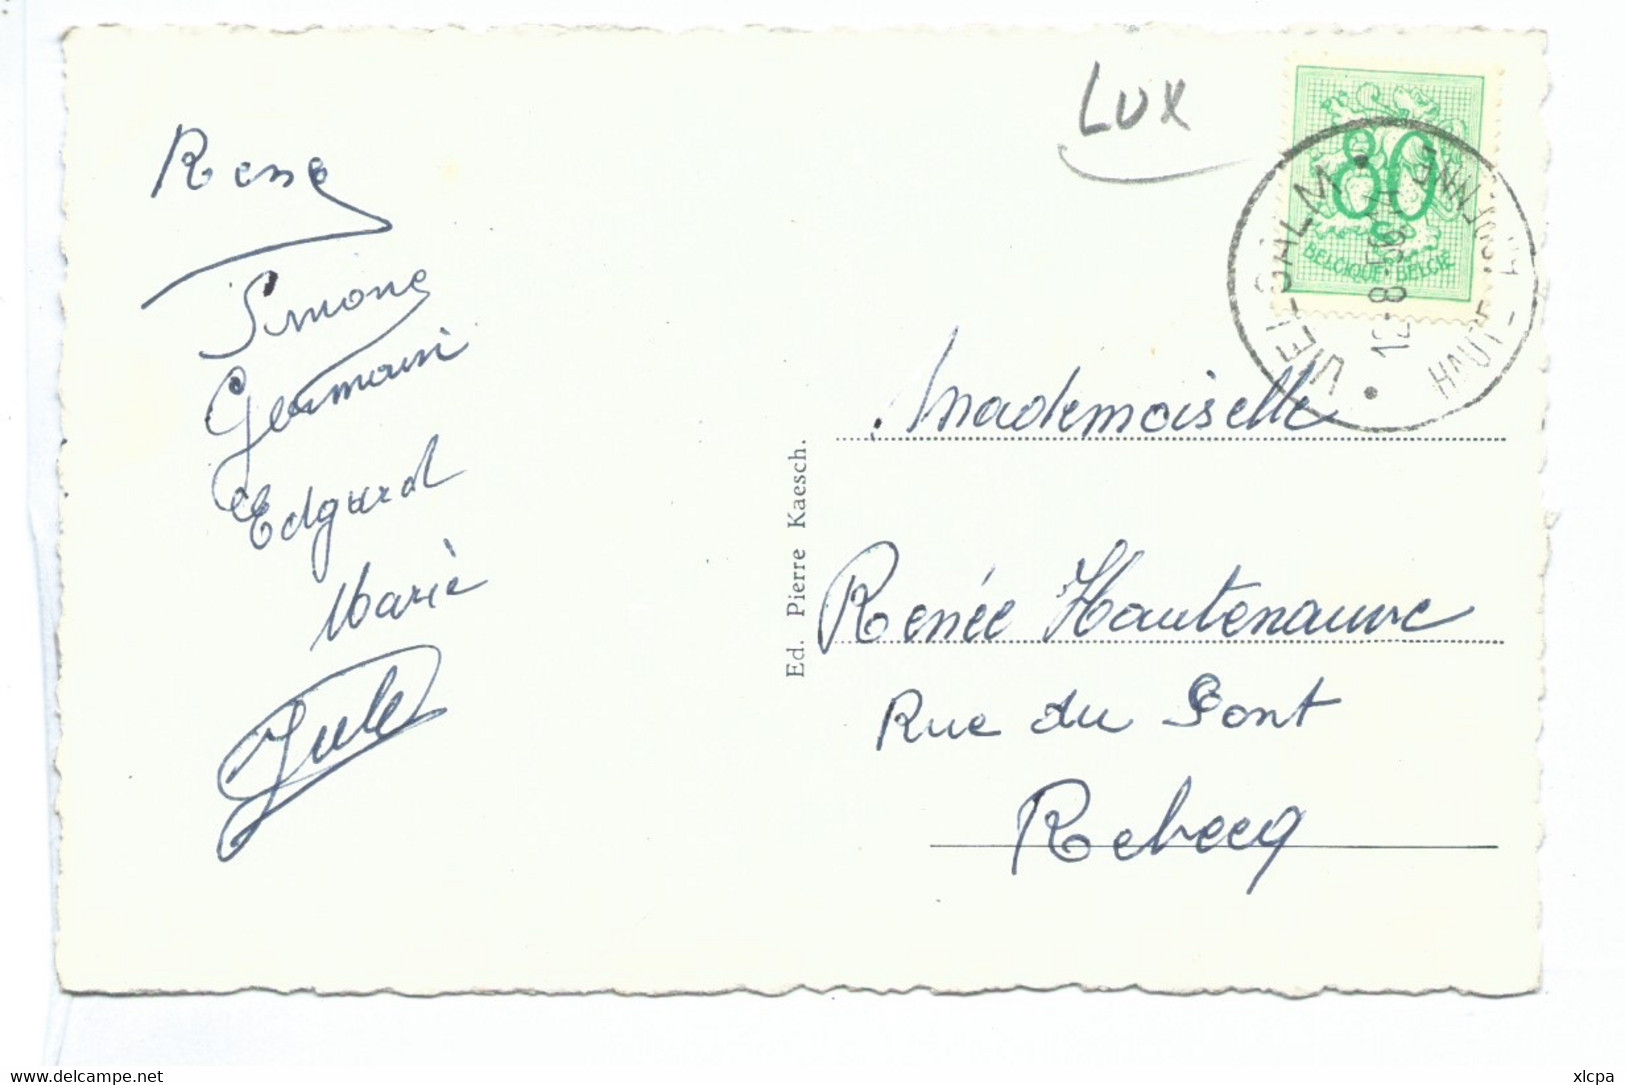 Lux
80
BELGIQUE-BELGIË
VIEL-SALM
HAUT-
René
Simone
Germain
Edgard
Marie
Jules
Ed. Pierre Kaesch.
Mademoiselle
Renée Hautenauve
Rue du Pont
Rebecq
www.delcampe.net
xlcpa